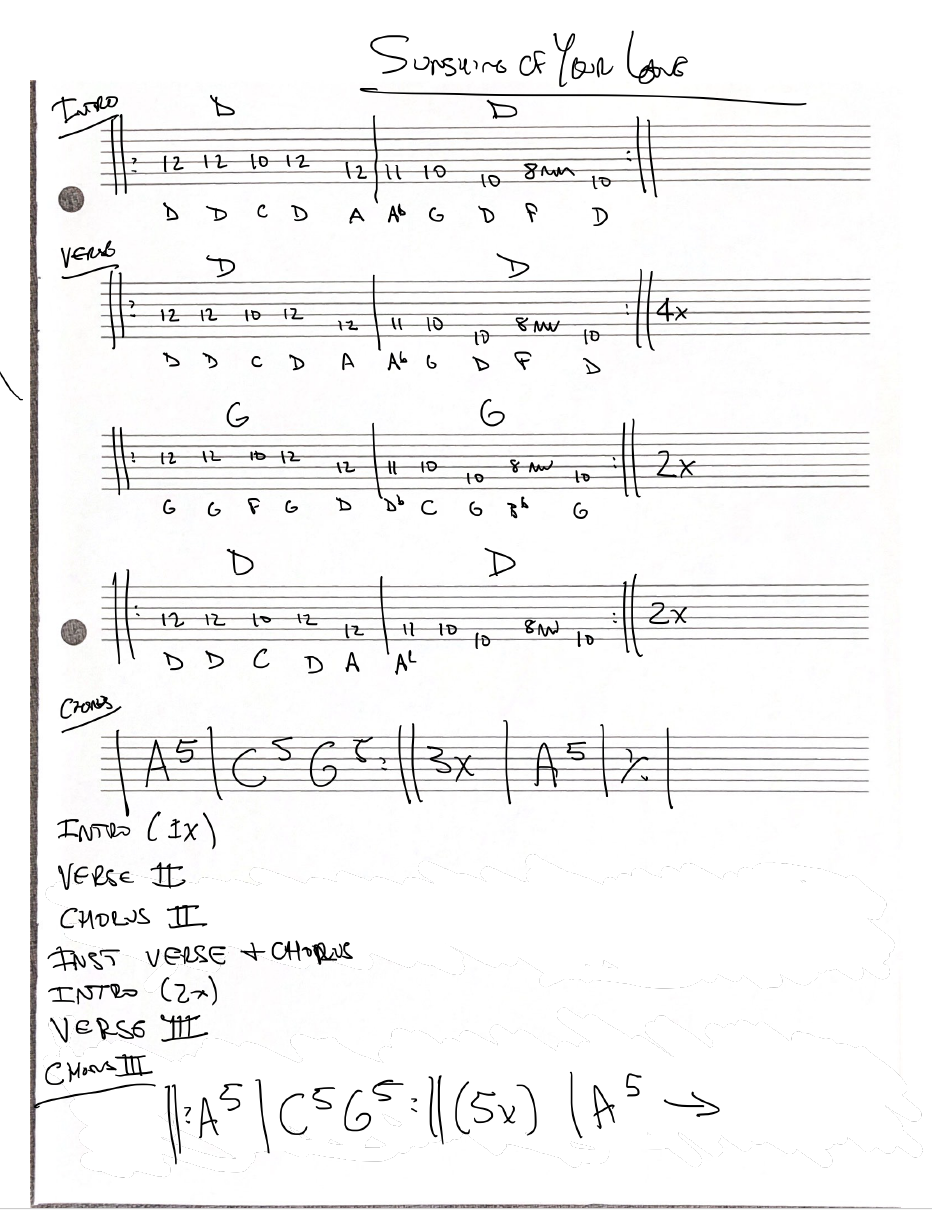 SUNSHINE OF YOUR LOVE
INTRO D D
12 12 10 12 12 11 10 10 8 10
D D C D A Ab G D F D
VERSE
D D
12 12 10 12 12 11 10 10 8 10 4x
D D C D A Ab G D F D
G G
12 12 10 12 12 11 10 10 8 10 2x
G G F G D Db C G Bb G
D D
12 12 10 12 12 11 10 10 8 10 2x
D D C D A Ab
CHORUS
| A5 | C5 G5 :|| 3x | A5 | % |
INTRO (1X)
VERSE II
CHORUS II
INST VERSE + CHORUS
INTRO (2x)
VERSE III
CHORUS III
||: A5 | C5 G5 :|| (5x) | A5 →